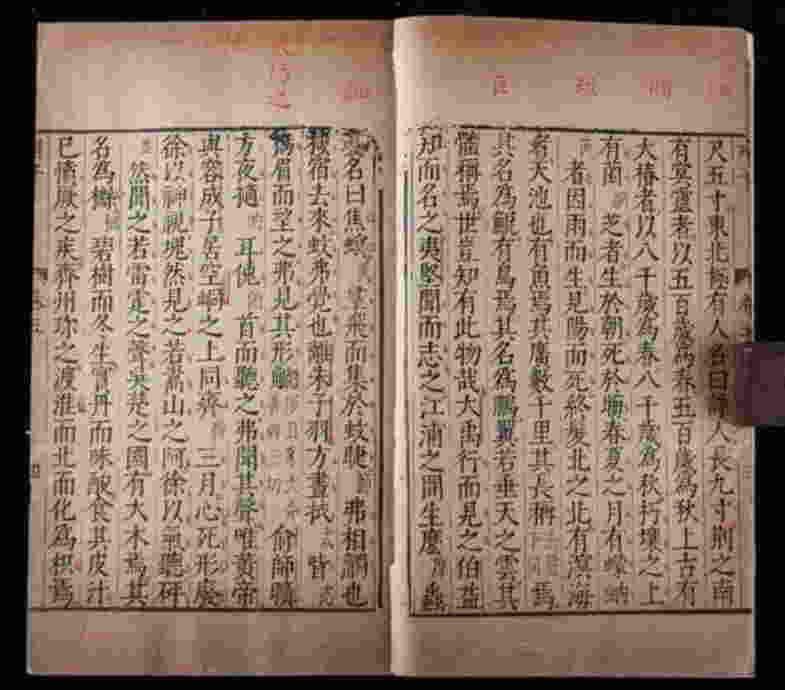 尺五寸東北極有人名曰諍人長九寸荊之南
有冥靈者以五百歲為春五百歲為秋上古有
大椿者以八千歲為春八千歲為秋朽壤之上
有菌芝者生於朝死於晦春夏之月有蠓蚋
者因雨而生見陽而死終髮北之北有溟海
者天池也有魚焉其廣數千里其長稱焉
其名為鯤有鳥焉其名為鵬翼若垂天之雲其
體稱焉世豈知有此物哉大禹行而見之伯益
知而名之夷堅聞而志之江浦之間生麼蟲
名曰焦螟羣飛而集於蚊睫弗相觸也
栖宿去來蚊弗覺也離朱子羽方晝拭眥
揚眉而望之弗見其形觽俞師曠
方夜擿耳俛首而聽之弗聞其聲唯黃帝
與容成子居空峒之上同齊三月心死形廢
徐以神視塊然見之若嵩山之阿徐以氣聽砰
然聞之若雷霆之聲吳楚之國有大木焉其
名為櫾碧樹而冬生實丹而味酸食其皮汁
已憤厥之疾齊州珍之渡淮而北而化為枳焉